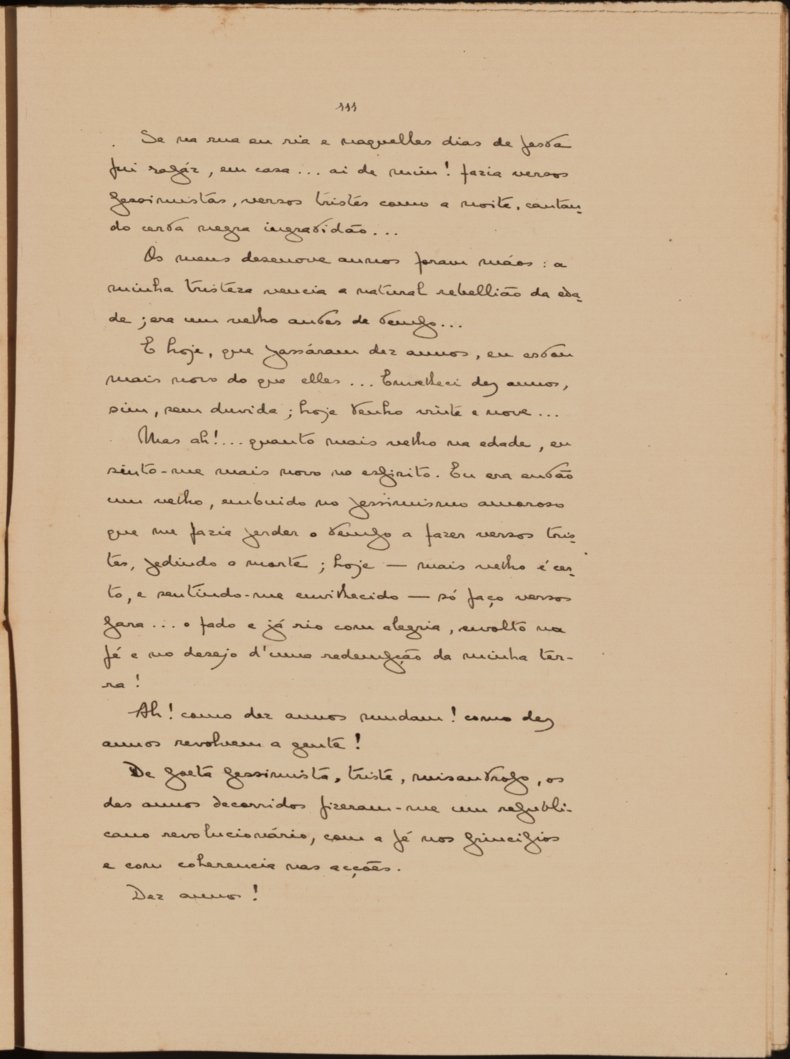 111
Se na rua eu ria e naquelles dias de festa
fui rapáz, em casa... ai de mim! fazia versos
pessimistas, versos tristes como a noite, cantan-
do certa negra ingratidão...
Os meus desenove annos foram máos: a
minha tristeza vencia a natural rebellião da eda-
de; era um velho antes de tempo...
E hoje, que passáram dez annos, eu estou
mais novo do que elles... Envelheci dez annos,
sim, sem duvida; hoje tenho vinte e nove...
Mas ah!... quanto mais velho na edade, eu
sinto-me mais novo no espirito. Eu era então
um velho, embuido no pessimismo amoroso
que me fazia perder o tempo a fazer versos tris-
tes, pedindo a morte; hoje — mais velho é cer-
to, e sentindo-me envilhecido — só faço versos
para... o fado e já rio com alegria, envolto na
fé e no desejo d'uma redempção da minha ter-
ra!
Ah! como dez annos mudam! como dez
annos revolvem a gente!
De poeta pessimista, triste, misantropo, os
des annos decorridos fizeram-me um republi-
cano revolucionário, com a fé nos principios
e com coherencia nas acções.
Dez annos!